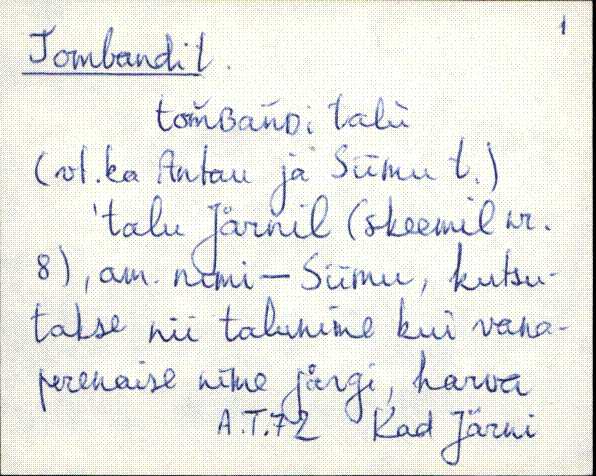 1
Tombandi t.
tom̆ʙan̆ᴅi talù
(vt. ka Antau ja Siimu t.)
'talu Järnil (skeemil nr.
8), am. nimi – Siimu, kutsu-
takse nii talunime kui vana-
perenaise nime järgi, harva
A.T.72 Kad Järni